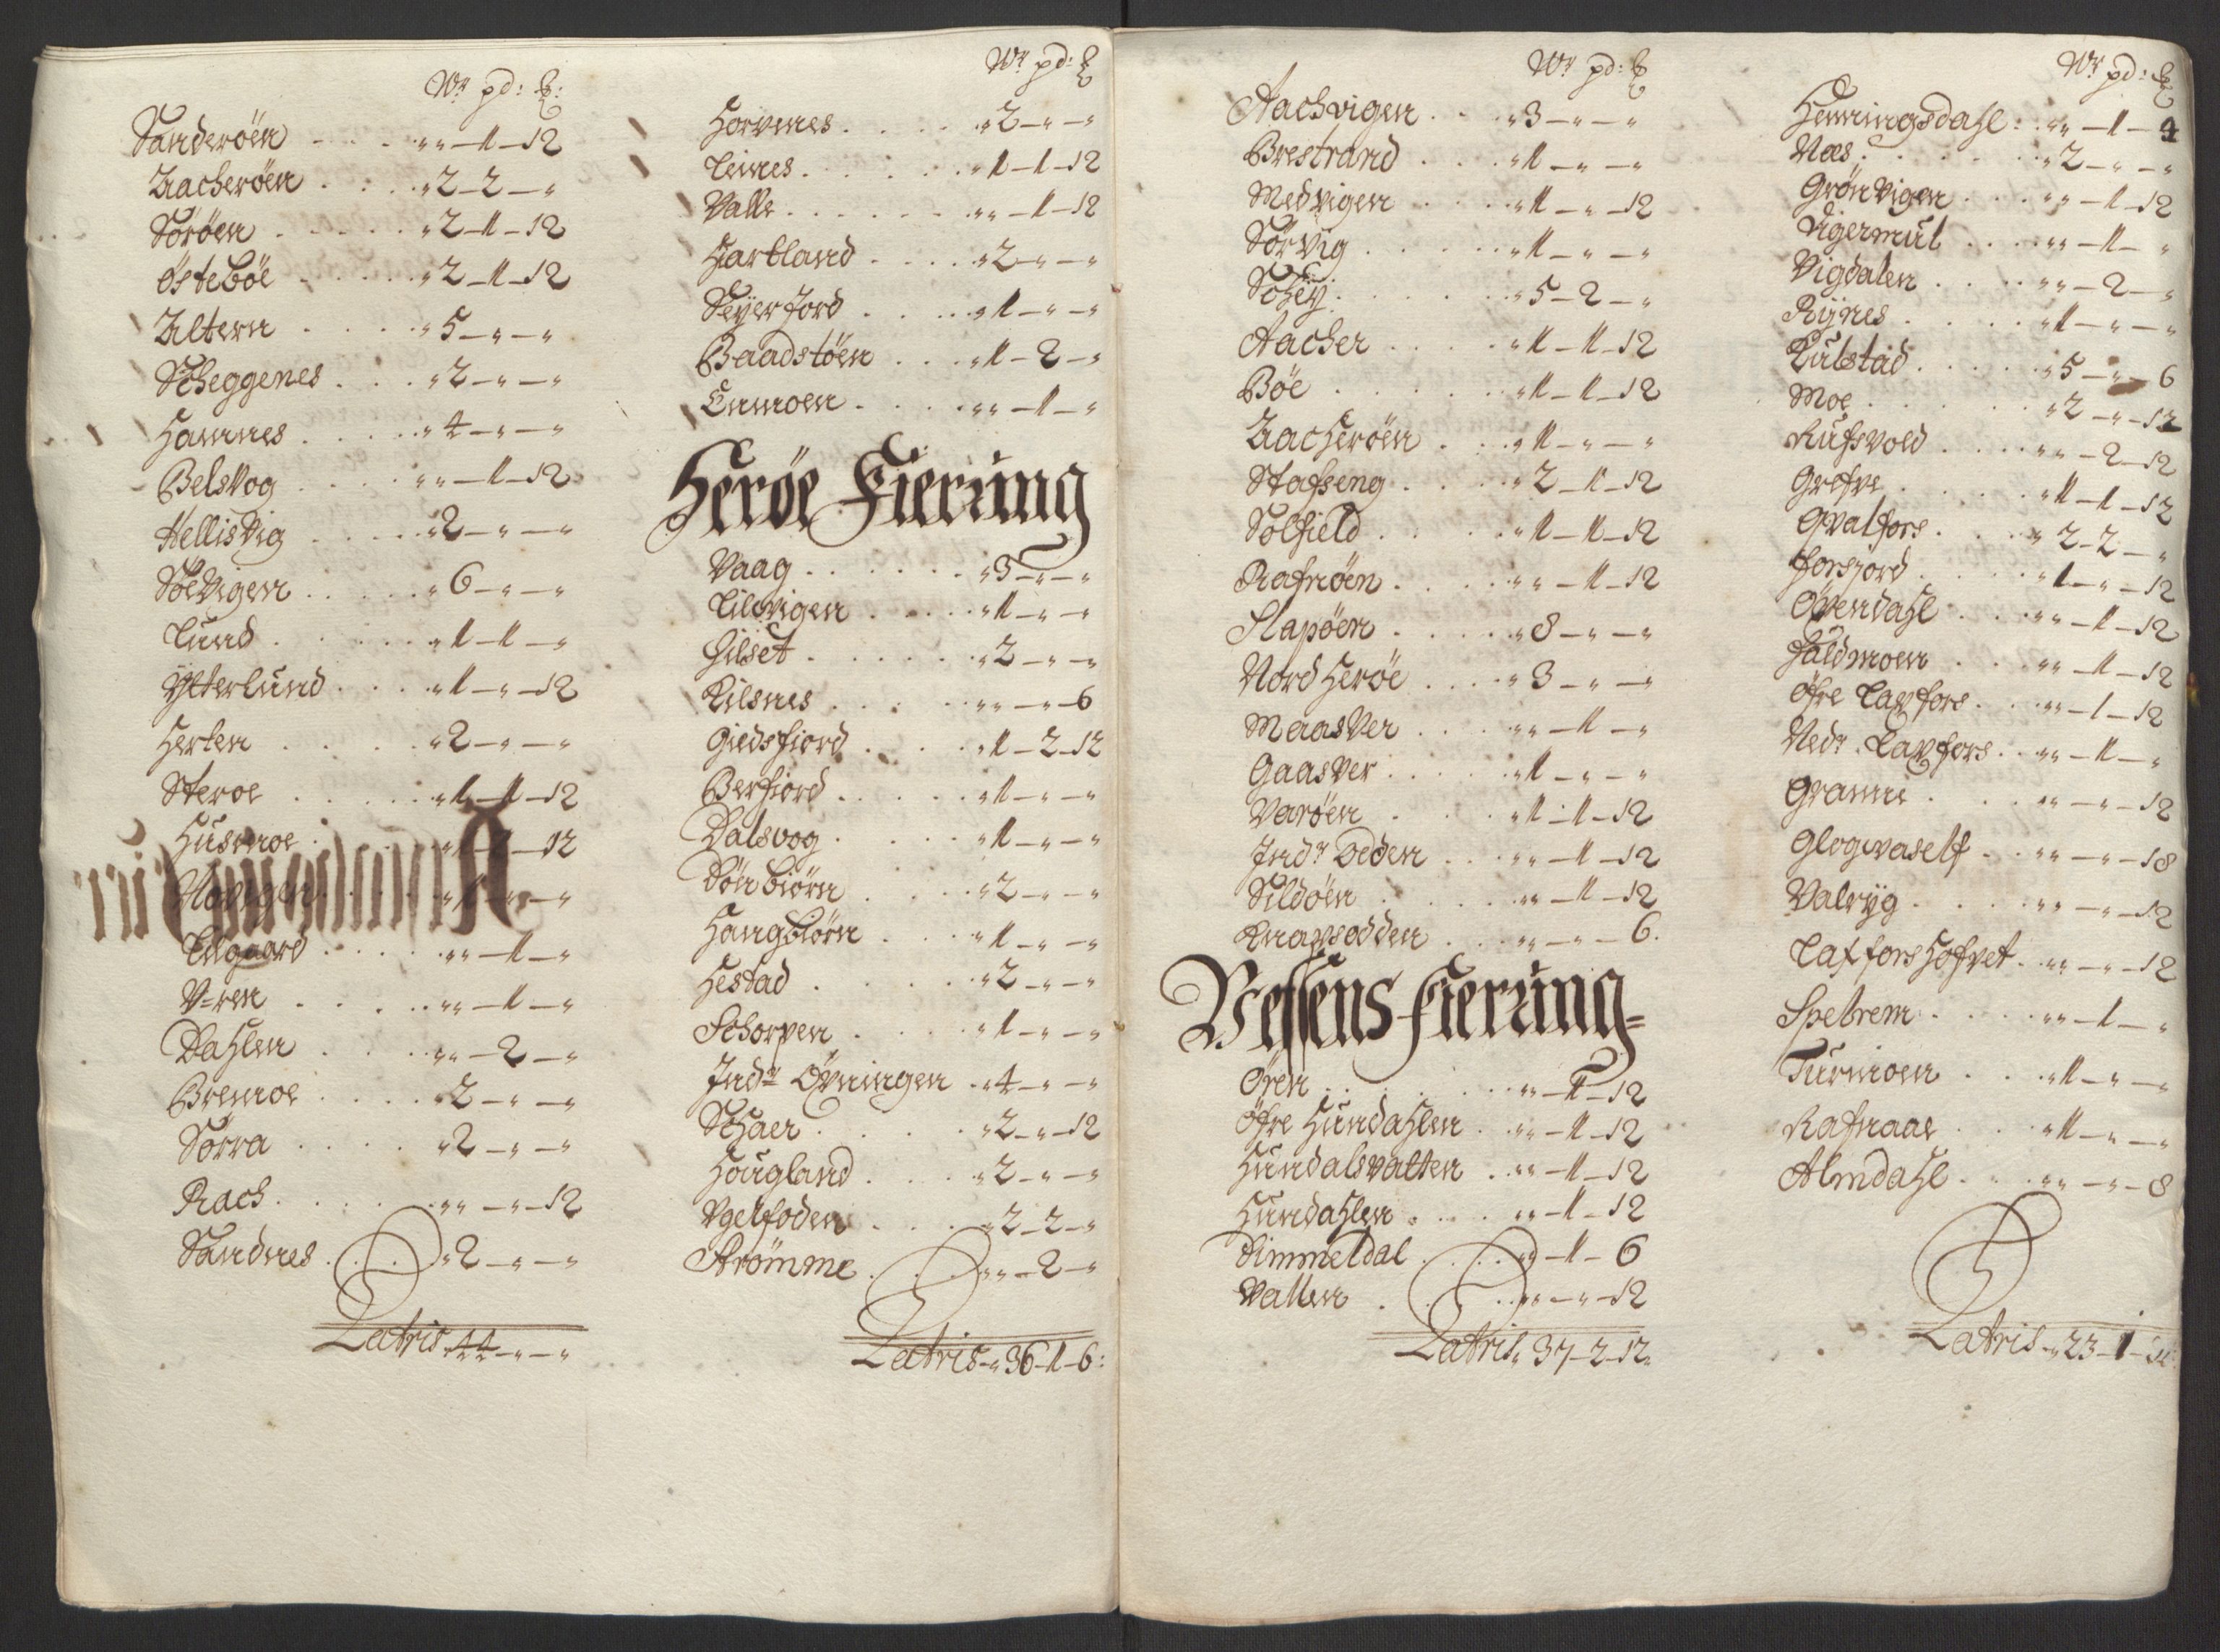 Wr pd: lb:
Sanderöen . . . „ „ – 1 – 12
Zacheröen . . . „ 2 – 2 – „
Söröen . . . „ 2 – 1 – 12
Östeböe . . . „ 2 – 1 – 12
Zlteren . . . „ 5 – „ – „
Scheggenes . . . „ 2 – „ – „
Hamnes . . . „ 4 – „ – „
BelsVog . . . „ „ – 1 – 12
HellisVig . . . „ 2 – „ – „
SöeVigen . . . „ 6 – „ – „
Lund . . . „ 1 – 1 – „
Ytterlund . . . „ 1 – „ – 12
Herten . . . „ 2 – „ – „
Steroe . . . „ 1 – 1 – 12
Husmoe . . . – 12
. . . – „
. . . „ „ – 1 – „
V=ren . . . „ „ – 1 – „
Dahlen . . . „ „ – 2 – „
Bremoe . . . „ 2 – „ – „
Sörra . . . „ 2 – „ – „
Rach . . . „ „ – „ – 12
Sandnes . . . „ 2 – „ – „
Latris „ 44 – „ – „
Wr pd: lb
Horvnes . . . „ 2 – „ – „
Leines . . . „ 1 – 1 – 12
Valle . . . „ „ – 1 – 12
Hartland . . . „ 2 – „ – „
Seyerfjord . . . „ 1 – „ – „
Baadstöen . . . „ 1 – 2 – „
Enmoen . . . „ „ – 1 – „
Heröe Fierung
Vaag . . . „ 3 – „ – „
Lilvigen . . . „ 1 – „ – „
Hilset . . . „ 2 – „ – „
Kilsnes . . . „ „ – „ – 6
Giedsfiord . . . „ 1 – 2 – 12
Berfiord . . . „ 1 – „ – „
Dalsvog . . . „ 1 – „ – „
Dönbiörn . . . „ 2 – „ – „
Hangbiörn . . . „ 1 – „ – „
Hestad . . . „ 2 – „ – „
Schorpen . . . „ 1 – „ – „
Indr Öfningen . . „ 4 – „ – „
Schaer . . . „ 2 – „ – 12
Hougland . . . „ 2 – „ – „
Vgelfoden . . . „ 2 – 2 – „
Strömme . . . „ „ – 2 – „
Latris „ 36 – 1 – 6:
Wr pd: lb
Aachvigen . . . „ 3 – „ – „
Brestrand . . . „ 1 – „ – „
Medvigen . . . „ 1 – „ – 12
SörVig . . . „ 1 – „ – „
Schey . . . „ 5 – 2 – „
Aacher . . . „ 1 – 1 – 12
Böe . . . „ 1 – 1 – 12
Zacheröen . . . „ 1 – „ – „
Stafseng . . . „ 2 – 1 – 12
Solfield . . . „ 1 – 1 – 12
Rafnöen . . . „ „ – 1 – 12
Slapöen . . . „ 8 – „ – „
Nord Heröe . . . „ 3 – „ – „
MaasVer . . . „ „ – 1 – „
GaasVer . . . „ 1 – „ – „
Varöen . . . „ 1 – 1 – 12
Indr Öeden . . . „ „ – 1 – 12
Sildöen . . . „ „ – 1 – 12
Knapsodden . . . „ „ – „ – 6.
Vefsens Fierung=
Ören . . . „ „ – 1 – 12
Öfre Hundahlen . . . „ „ – 1 – 12
Hundalsvatten . . „ „ – 1 – 12
Hundahlen . . . „ „ – 1 – 12
Dimmeldal . . . „ „ – 1 – 6
Vatten . . . „ „ – „ – 12
Latris „ 37 – 2 – 12
Wr pd: lb
Henningsdahl . . „ „ – 1 – 4
Næs . . . „ 2 – „ – „
Grönvigen . . . „ „ – 1 – 12
Digermul . . . „ „ – 1 – „
Vigdalen . . . „ „ – 2 – „
Rynes . . . „ 1 – „ – „
Kulstad . . . „ 5 – „ – 6
Moe . . . „ 2 – „ – 12
Rufsvold . . . „ „ – 2 – 12
Grefve . . . „ 1 – 1 – 12
Gvalfors . . . „ 2 – 2 – „
Forsjord . . . „ 1 – „ – 12
Övendahl . . . „ „ – 1 – 12
Faldmoen . . . „ „ – 1 – 12
Öfre Laxfors . . „ „ – 1 – 12
Nedr. Laxfors . . „ „ – 1 – „
Granne . . . „ „ – „ – 12
Glogvaself . . „ „ – „ – 18
Valryg . . . „ „ – „ – 12
Laxfors Hofvet . „ „ – „ – 12
Spelrem . . . „ „ – 1 – „
Turmoen . . . „ 1 – „ – „
Rafnaae . . . „ 1 – „ – „
Almdahl . . . „ „ – „ – 8
Latris „ 23 – 1 –